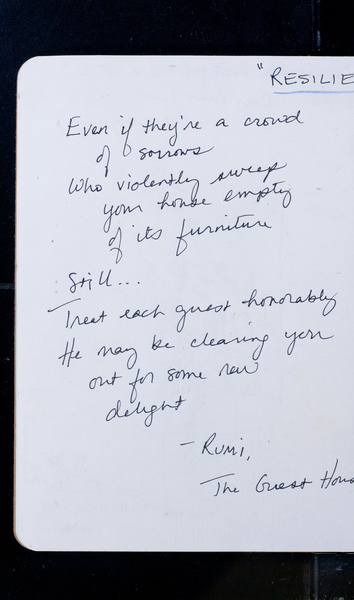 "RESILIE
Even if they're a crowd
of sorrows
Who violently sweep
your house empty
of its furniture
Still...
Treat each guest honorably
He may be clearing you
out for some new
delight
- Rumi,
The Guest Hous